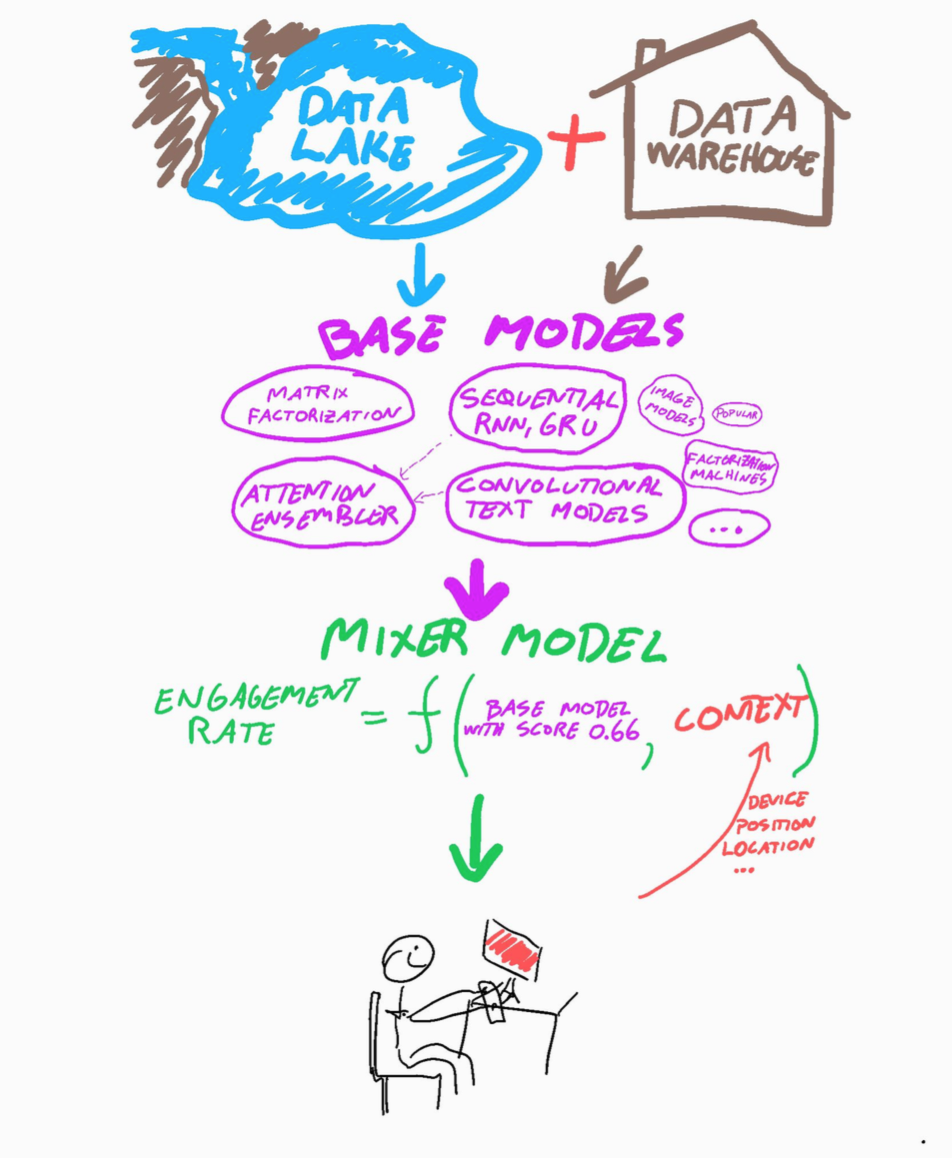 DATA
LAKE
+
DATA
WAREHOUSE
BASE MODELS
MATRIX
FACTORIZATION
SEQUENTIAL
RNN, GRU
IMAGE
MODELS
POPULAR
FACTORIZATION
MACHINES
ATTENTION
ENSEMBLER
CONVOLUTIONAL
TEXT MODELS
...
MIXER MODEL
ENGAGEMENT
RATE
= f (
BASE MODEL
WITH SCORE 0.66
,
CONTEXT
)
DEVICE
POSITION
LOCATION
...